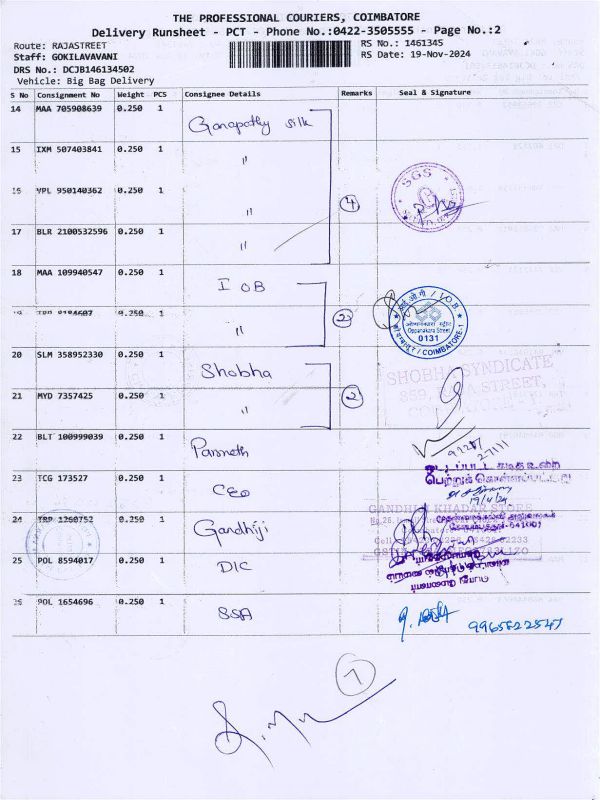 THE PROFESSIONAL COURIERS, COIMBATORE
Delivery Runsheet - PCT - Phone No.:0422-3505555 - Page No.:2
Route: RAJASTREET RS No.: 1461345
Staff: GOKILAVAVANI RS Date: 19-Nov-2024
DRS No.: DCJB146134502
Vehicle: Big Bag Delivery
S No Consignment No Weight PCS Consignee Details Remarks Seal & Signature
14 MAA 705908639 0.250 1 Ganapathy silk
15 IXM 507403841 0.250 1 〃
SGS
16 VPL 950140362 0.250 1 〃 4
17 BLR 2100532596 0.250 1 〃
18 MAA 109940547 0.250 1 IOB
0.250 1 〃 2
Oppanakara Street
0131
COIMBATORE-1
20 SLM 358952330 0.250 1 Shobha
SHOBHA SYNDICATE
859, RAJA STREET,
21 MYD 7357425 0.250 1 〃 2
22 BLT 100999039 0.250 1
27111
23 TCG 173527 0.250 1 CEO
பெற்றுக் கொள்ளப்பட்டது
GANDHIJI KHADAR STORE
24 TRP 1260752 0.250 1 Gandhiji
25 POL 8594017 0.250 1 DIC
26 POL 1654696 0.250 1 SSA
9965822547
7